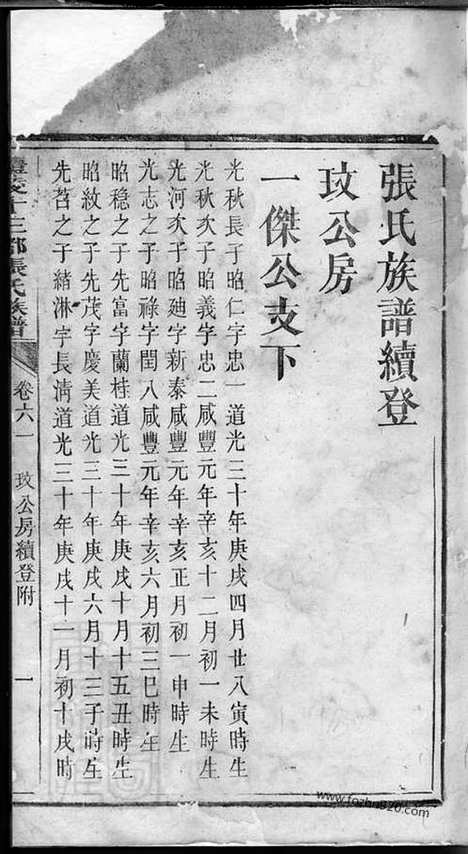 張氏族譜續登
玟公房
一傑公支下
光秋長子昭仁字忠一道光三十年庚戌四月廿八寅時生
光秋次子昭義字忠二咸豐元年辛亥十二月初一未時生
光河次子昭廸字新泰咸豐元年辛亥正月初一申時生
光志之子昭祿字閏八咸豐元年辛亥六月初三巳時生
昭稳之子先富字蘭桂道光三十年庚戌十月十五丑時生
昭紋之子先茂字慶美道光三十年庚戌六月十三子時生
先苕之子緒淋字長清道光三十年庚戌十一月初十戌時
十三都張氏族譜 卷六一 玟公房續登附 一
www.fozhu920.com